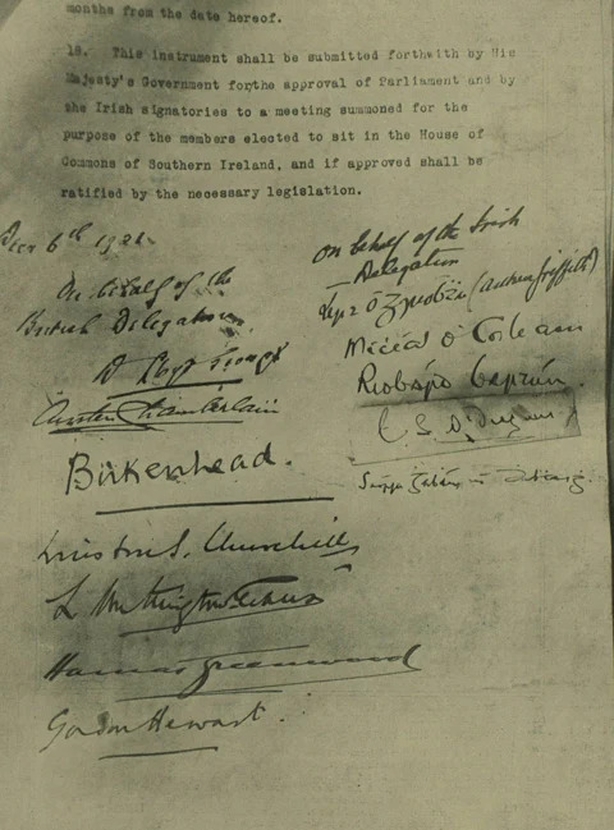 months from the date hereof.
18. This instrument shall be submitted forthwith by His
Majesty's Government for the approval of Parliament and by
the Irish signatories to a meeting summoned for the
purpose of the members elected to sit in the House of
Commons of Southern Ireland, and if approved shall be
ratified by the necessary legislation.
Decr 6th 1921.
On behalf of the
British Delegation,
D Lloyd George
Austen Chamberlain
Birkenhead.
Winston S. Churchill
L Worthington-Evans
Hamar Greenwood
Gordon Hewart.
On behalf of the Irish
Delegation
(Arthur Griffith)
Mícéal Ó Coileain
Riobárd Bartún.